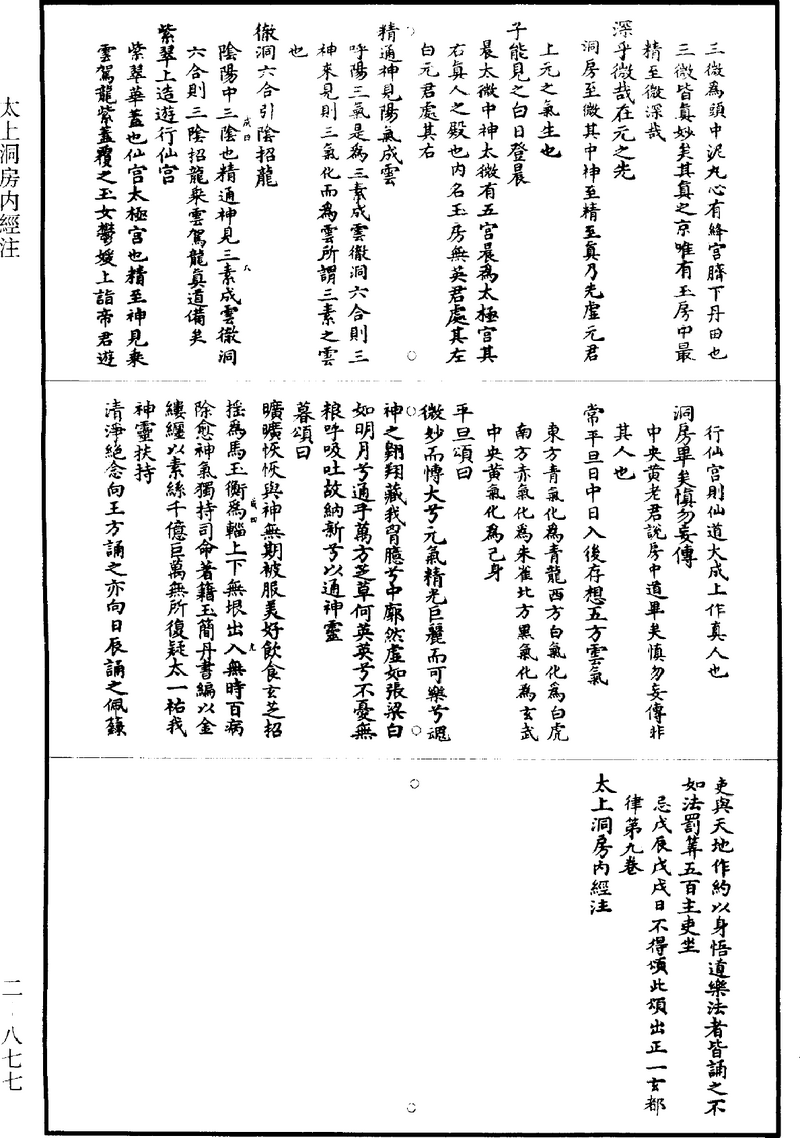 太上洞房內經注
二·八七七
三微爲頭中泥丸心有絳宮臍下丹田也
三微皆眞妙矣其眞之京唯有玉房中最
精至微深哉
深乎微哉在元之先
洞房至微其中神至精至眞乃先虛元君
上元之氣生也
子能見之白日登晨
晨太微中神太微有五宮晨爲太極宮其
右眞人之殿也內名玉房無英君處其左
白元君處其右
精通神見陽氣成雲
呼陽三氣是爲三素成雲徹洞六合則三
神來見則三氣化而爲雲所謂三素之雲
也
徹洞六合引陰招龍
陰陽中三陰也精通神見三素成雲徹洞
六合則三陰招龍乘雲駕龍眞道備矣
紫翠上造遊行仙宮
紫翠華蓋也仙宮太極宮也精至神見乘
雲駕龍紫蓋覆之玉女鬱嫂上詣帝君遊
行仙宮則仙道大成上作眞人也
洞房畢矣愼勿妄傳
中央黃老君說房中道畢矣愼勿妄傳非
其人也
常平旦日中日入後存想五方雲氣
東方青氣化爲青龍西方白氣化爲白虎
南方赤氣化爲朱雀北方黑氣化爲玄武
中央黃氣化爲己身
平旦頌曰
微妙而慱大兮元氣精光巨麗而可樂兮魂
神之翺翔藏我胷臆兮中廓然虛如張梁白
如明月兮通乎萬方芝草何英英兮不憂無
粮呼吸吐故納新兮以通神靈
暮頌曰
曠曠恢恢與神無期被服美好飲食玄芝招
搖爲馬玉衡爲輜上下無垠出入無時百病
除愈神氣獨持司命著籍玉簡丹書編以金
縷纏以素絲千億巨萬無所復疑太一祐我
神靈扶持
清淨絕念向王方誦之亦向日辰誦之佩籙
吏與天地作約以身悟道樂法者皆誦之不
如法罰筭五百主吏坐
忌戊辰戊戌日不得頌此頌出正一玄都
律第九卷
太上洞房內經注